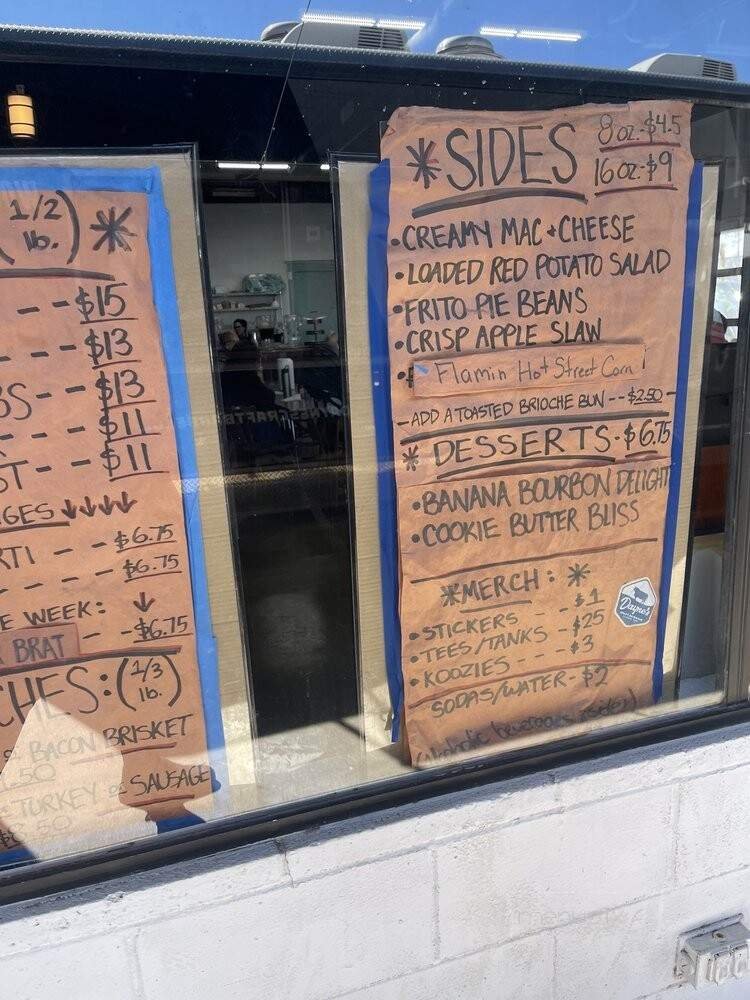 1/2
( lb. ) *
- - $15
- - - $13
BS - - $13
- - - $11
ST - - $11
GES ↓↓↓↓
RTI - - - $6.75
- - - - $6.75
E WEEK: ↓
BRAT - - $6.75
CHES: (1/3 lb.)
BACON BRISKET
.50
TURKEY or SAUSAGE
.50
*SIDES 8 oz.-$4.5
16 oz-$9
•CREAMY MAC+CHEESE
•LOADED RED POTATO SALAD
•FRITO PIE BEANS
•CRISP APPLE SLAW
Flamin Hot Street Corn
-ADD A TOASTED BRIOCHE BUN -- $2.50-
* DESSERTS-$6.75
•BANANA BOURBON DELIGHT
•COOKIE BUTTER BLISS
*MERCH: *
•STICKERS - - - $1
•TEES/TANKS - - $25
•KOOZIES - - - $3
SODAS/WATER- $2
Alcoholic beverages inside!
Dayne's